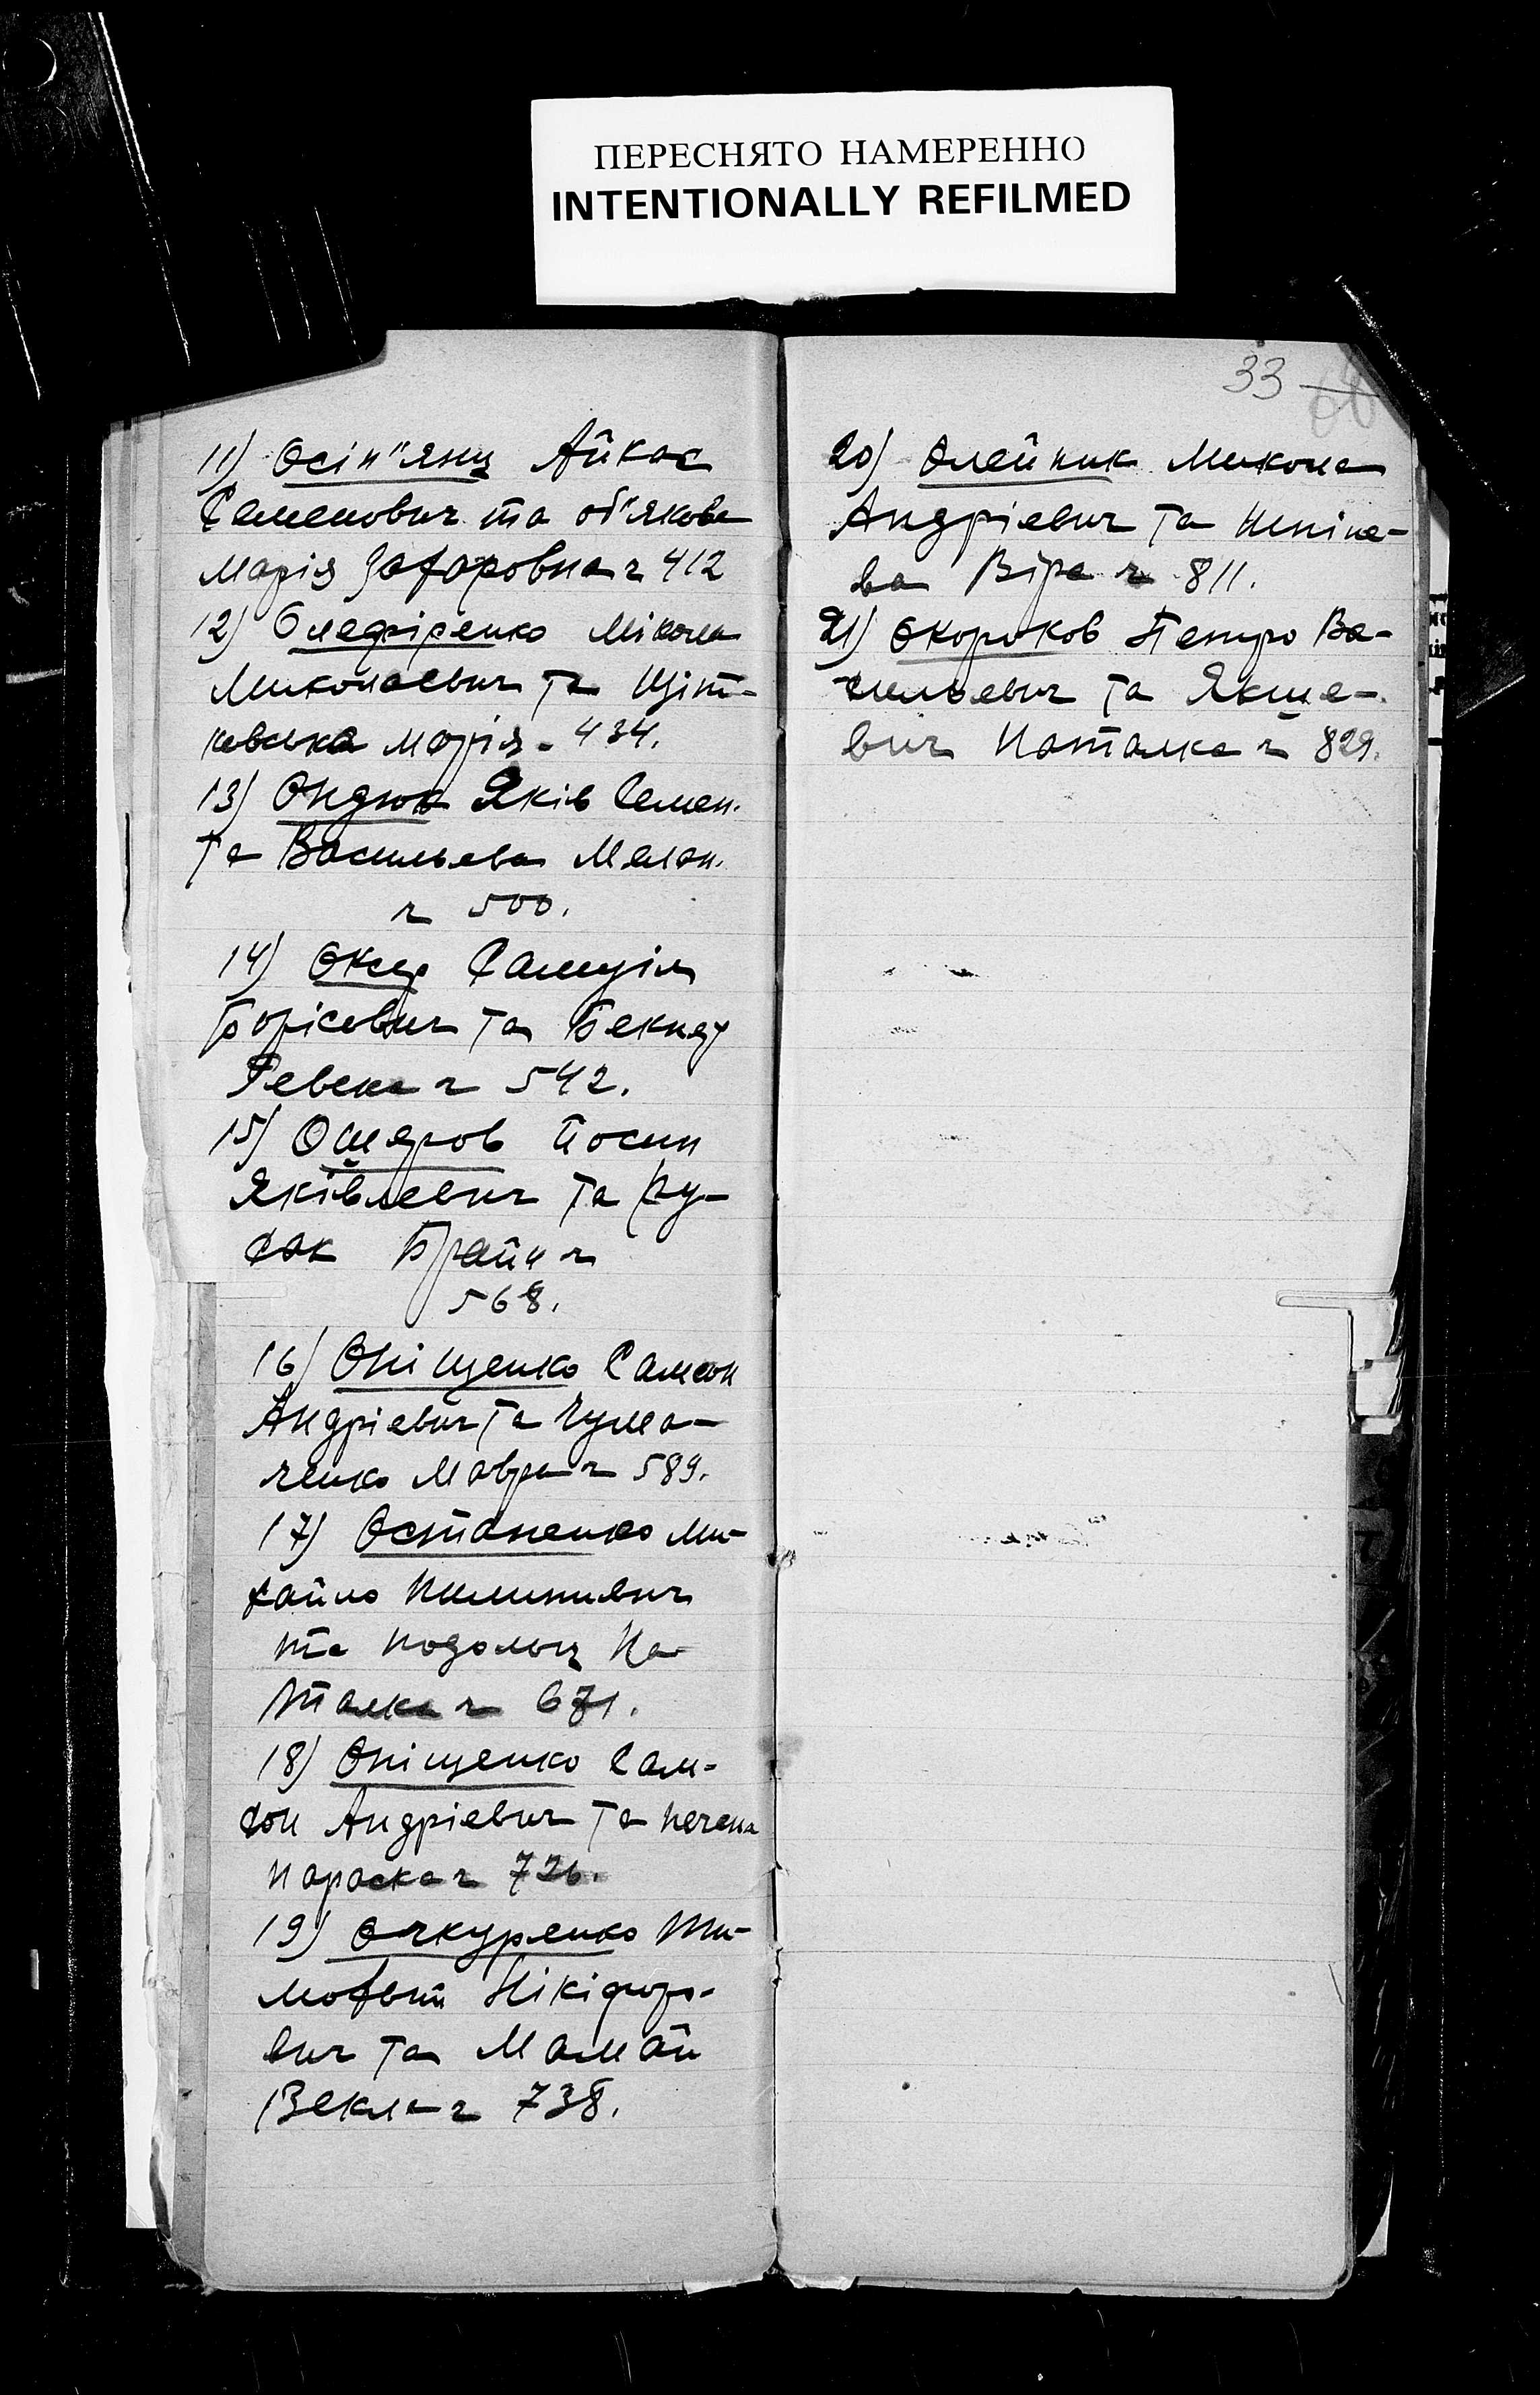 ПЕРЕСНЯТО НАМЕРЕННО
INTENTIONALLY REFILMED
33
11) Осіп"янц Айкас
Семенович та об"якова
Марія Захаровна ч 412
12) Олефіренко Мікола
Миколаевич та Цвіт-
ковська Марія - 434.
13) Ондюк Яків Семен.
та Васильева Мелан.
ч 500.
14) Оксер Самуіл
Борісович та Бекнер
Ревека ч 542.
15) Ошеров Йосип
Яківлевич та Ру-
сак Брайн ч
568.
16) Оніщенко Самсон
Андріевич та Чума-
ченко Мавра ч 589.
17) Остапенко Ми-
хайло Пилипивич
та Подольц На-
талка ч 671.
18) Оніщенко Сам-
сон Андріевич та
Параска ч 726.
19) Очкуренко Ти-
мофый Нікіфоро-
вич та Мамай
Векла ч 738.
20) Олейник Микола
Андріевич та Шпіле-
ва Віра ч 811.
21) Окороков Петро Ва-
сильевич та Якше-
вич Наталка ч 829.